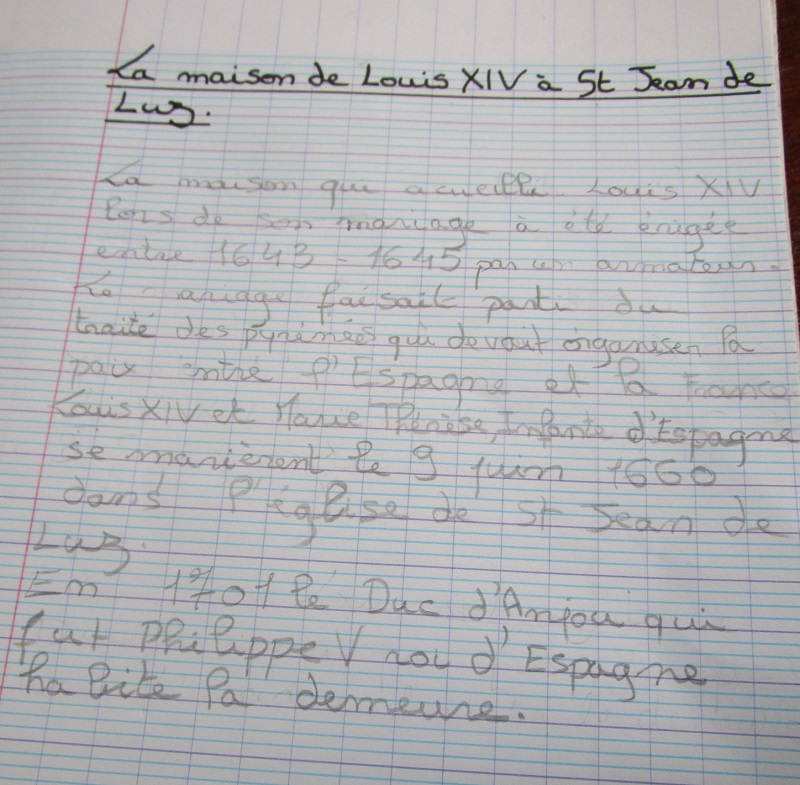 La maison de Louis XIV à St Jean de
Luz.
La maison qui acueille Louis XIV
lors de son mariage à été érigée
entre 1643 - 1645 par un armateur.
Le ariage faisait parti du
traité des pyrénées qui devait organiser la
paix entre l'Espagne et la France
Louis XIV et Marie Thérèse, Infante d'Espagne
se marièrent le 9 juin 1660
dans l'église de St Jean de
Luz.
En 1701 le Duc d'Anjou qui
fut Philippe V roi d'Espagne
habite la demeure.